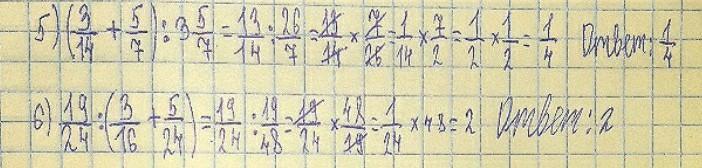 5) (3/14 + 5/7) : 3 5/7 = 13/14 : 26/7 = 13/14 × 7/26 = 1/14 × 7/2 = 1/2 × 1/2 = 1/4 Ответ: 1/4
6) 19/24 : (3/16 + 5/24) = 19/24 : 19/48 = 19/24 × 48/19 = 1/24 × 48 = 2 Ответ: 2